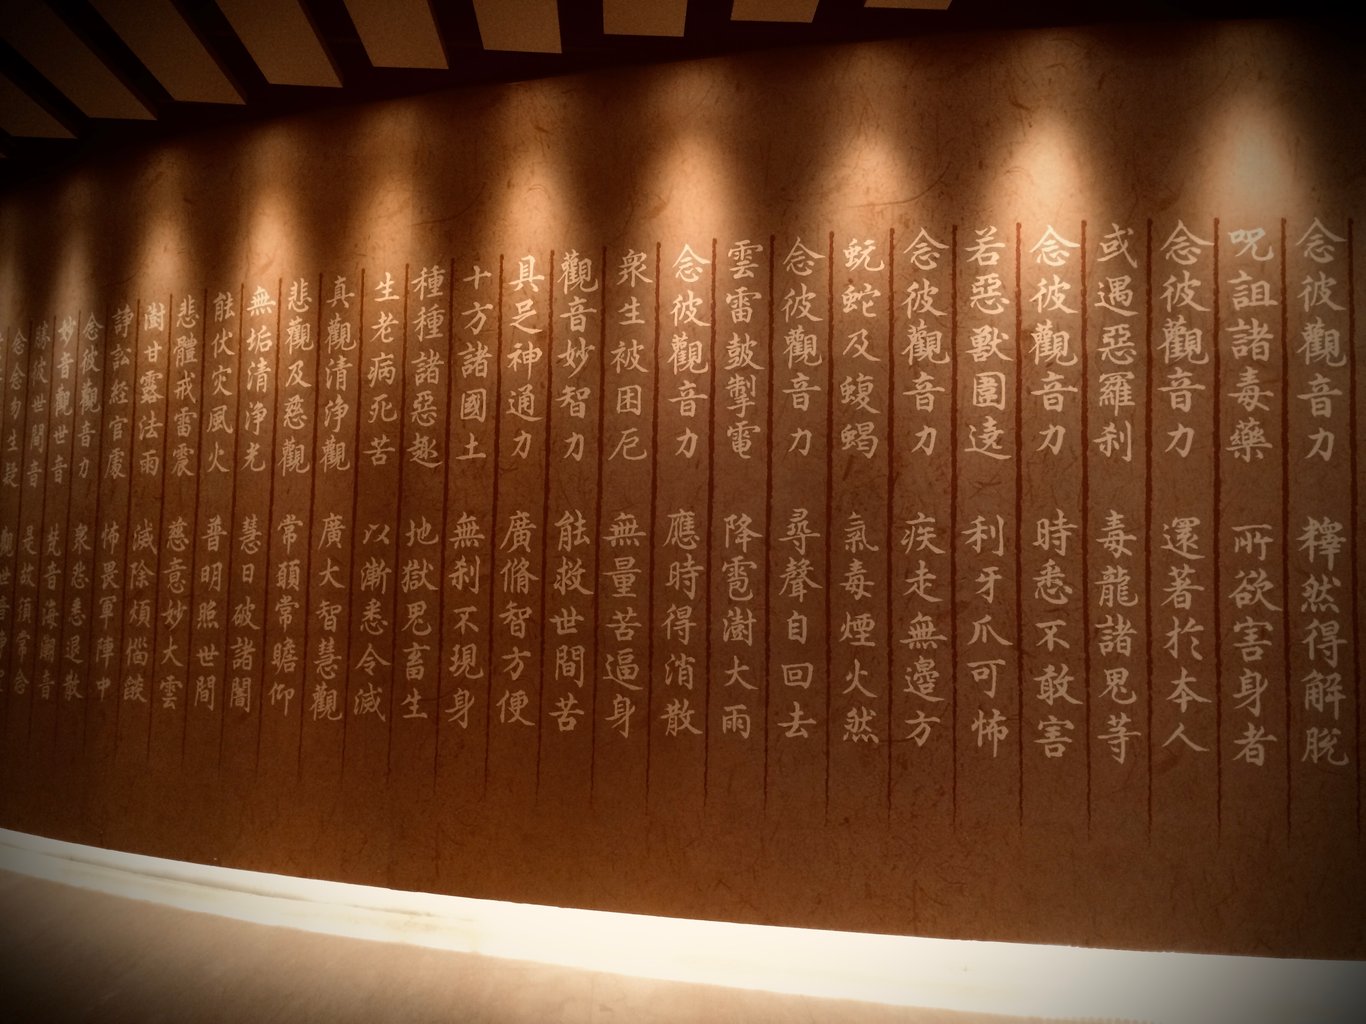 念彼觀音力 釋然得解脫
呪詛諸毒藥 所欲害身者
念彼觀音力 還著於本人
或遇惡羅刹 毒龍諸鬼等
念彼觀音力 時悉不敢害
若惡獸圍遶 利牙爪可怖
念彼觀音力 疾走無邊方
蚖蛇及蝮蝎 氣毒煙火然
念彼觀音力 尋聲自回去
雲雷鼓掣電 降雹澍大雨
念彼觀音力 應時得消散
衆生被困厄 無量苦逼身
觀音妙智力 能救世間苦
具足神通力 廣脩智方便
十方諸國土 無刹不現身
種種諸惡趣 地獄鬼畜生
生老病死苦 以漸悉令滅
真觀清淨觀 廣大智慧觀
悲觀及慈觀 常願常瞻仰
無垢清淨光 慧日破諸闇
能伏灾風火 普明照世間
悲體戒雷震 慈意妙大雲
澍甘露法雨 滅除煩惱燄
諍訟經官處 怖畏軍陣中
念彼觀音力 衆怨悉退散
妙音觀世音 梵音海潮音
勝彼世間音 是故須常念
念念勿生疑 觀世音淨聖